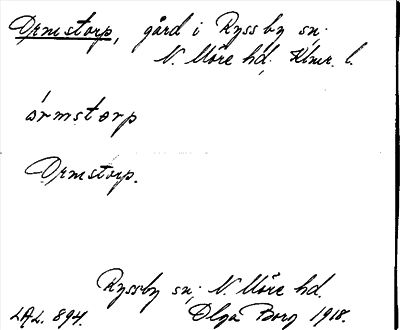 Ormstorp, gård i Ryssby sn;
N. Möre hd, Klmr. l.
órmstorp
Ormstorp.
Ryssby sn; N. Möre hd.
LAL. 894. Olga Borg 1918.